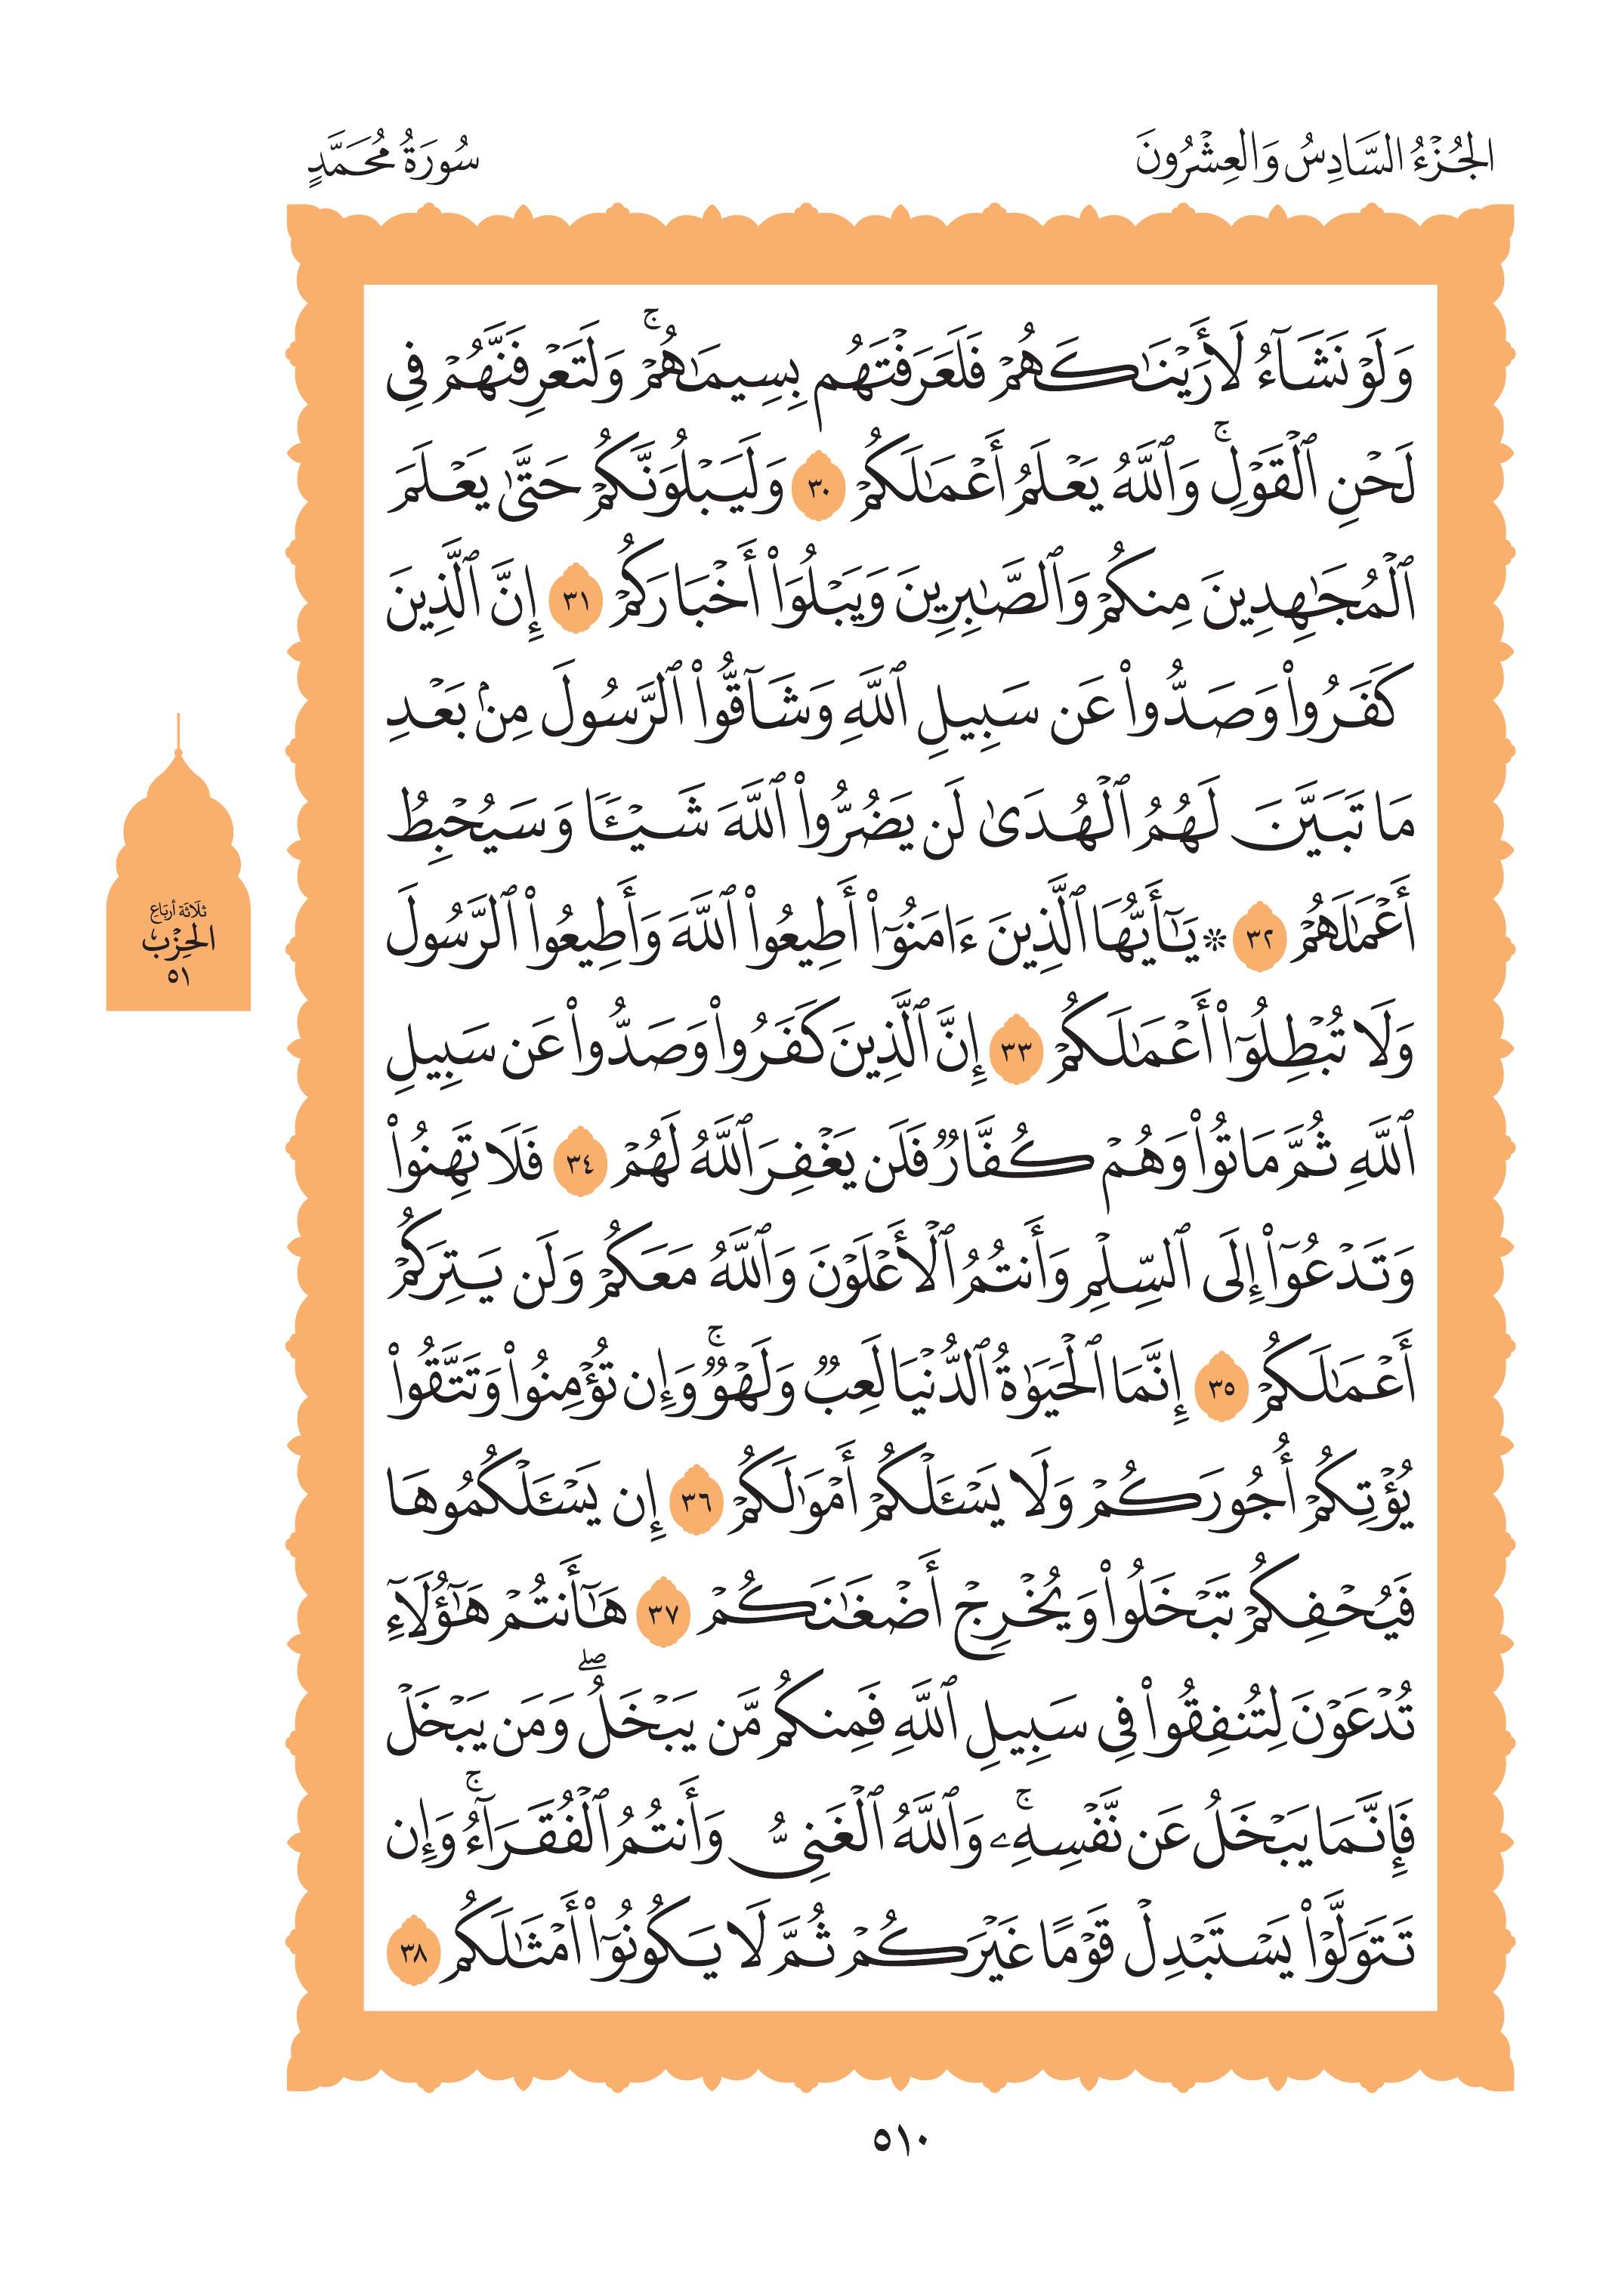 الجُزْءُ السَّادِسُ وَالعِشْرُونَ
سُورَةُ مُحَمَّدٍ
وَلَوْ نَشَآءُ لَأَرَيْنَـٰكَهُمْ فَلَعَرَفْتَهُم بِسِيمَـٰهُمْ ۚ وَلَتَعْرِفَنَّهُمْ فِى
لَحْنِ ٱلْقَوْلِ ۚ وَٱللَّهُ يَعْلَمُ أَعْمَـٰلَكُمْ ٣٠ وَلَيَبْلُوَنَّكُمْ حَتَّىٰ يَعْلَمَ
ٱلْمُجَـٰهِدِينَ مِنكُمْ وَٱلصَّـٰبِرِينَ وَيَبْلُوَا۟ أَخْبَارَكُمْ ٣١ إِنَّ ٱلَّذِينَ
كَفَرُوا۟ وَصَدُّوا۟ عَن سَبِيلِ ٱللَّهِ وَشَآقُّوا۟ ٱلرَّسُولَ مِنۢ بَعْدِ
مَا تَبَيَّنَ لَهُمُ ٱلْهُدَىٰ لَن يَضُرُّوا۟ ٱللَّهَ شَيْـًٔا وَسَيُحْبِطُ
أَعْمَـٰلَهُمْ ٣٢ ۞ يَـٰٓأَيُّهَا ٱلَّذِينَ ءَامَنُوٓا۟ أَطِيعُوا۟ ٱللَّهَ وَأَطِيعُوا۟ ٱلرَّسُولَ
وَلَا تُبْطِلُوٓا۟ أَعْمَـٰلَكُمْ ٣٣ إِنَّ ٱلَّذِينَ كَفَرُوا۟ وَصَدُّوا۟ عَن سَبِيلِ
ٱللَّهِ ثُمَّ مَاتُوا۟ وَهُمْ كُفَّارٌ فَلَن يَغْفِرَ ٱللَّهُ لَهُمْ ٣٤ فَلَا تَهِنُوا۟
وَتَدْعُوٓا۟ إِلَى ٱلسِّلْمِ وَأَنتُمُ ٱلْأَعْلَوْنَ وَٱللَّهُ مَعَكُمْ وَلَن يَتِرَكُمْ
أَعْمَـٰلَكُمْ ٣٥ إِنَّمَا ٱلْحَيَوٰةُ ٱلدُّنْيَا لَعِبٌ وَلَهْوٌ ۚ وَإِن تُؤْمِنُوا۟ وَتَتَّقُوا۟
يُؤْتِكُمْ أُجُورَكُمْ وَلَا يَسْـَٔلْكُمْ أَمْوَٰلَكُمْ ٣٦ إِن يَسْـَٔلْكُمُوهَا
فَيُحْفِكُمْ تَبْخَلُوا۟ وَيُخْرِجْ أَضْغَـٰنَكُمْ ٣٧ هَـٰٓأَنتُمْ هَـٰٓؤُلَآءِ
تُدْعَوْنَ لِتُنفِقُوا۟ فِى سَبِيلِ ٱللَّهِ فَمِنكُم مَّن يَبْخَلُ ۖ وَمَن يَبْخَلْ
فَإِنَّمَا يَبْخَلُ عَن نَّفْسِهِۦ ۚ وَٱللَّهُ ٱلْغَنِىُّ وَأَنتُمُ ٱلْفُقَرَآءُ ۚ وَإِن
تَتَوَلَّوْا۟ يَسْتَبْدِلْ قَوْمًا غَيْرَكُمْ ثُمَّ لَا يَكُونُوٓا۟ أَمْثَـٰلَكُم ٣٨
ثَلَاثَة أَربَاعِ
الحِزْب
٥١
٥١٠